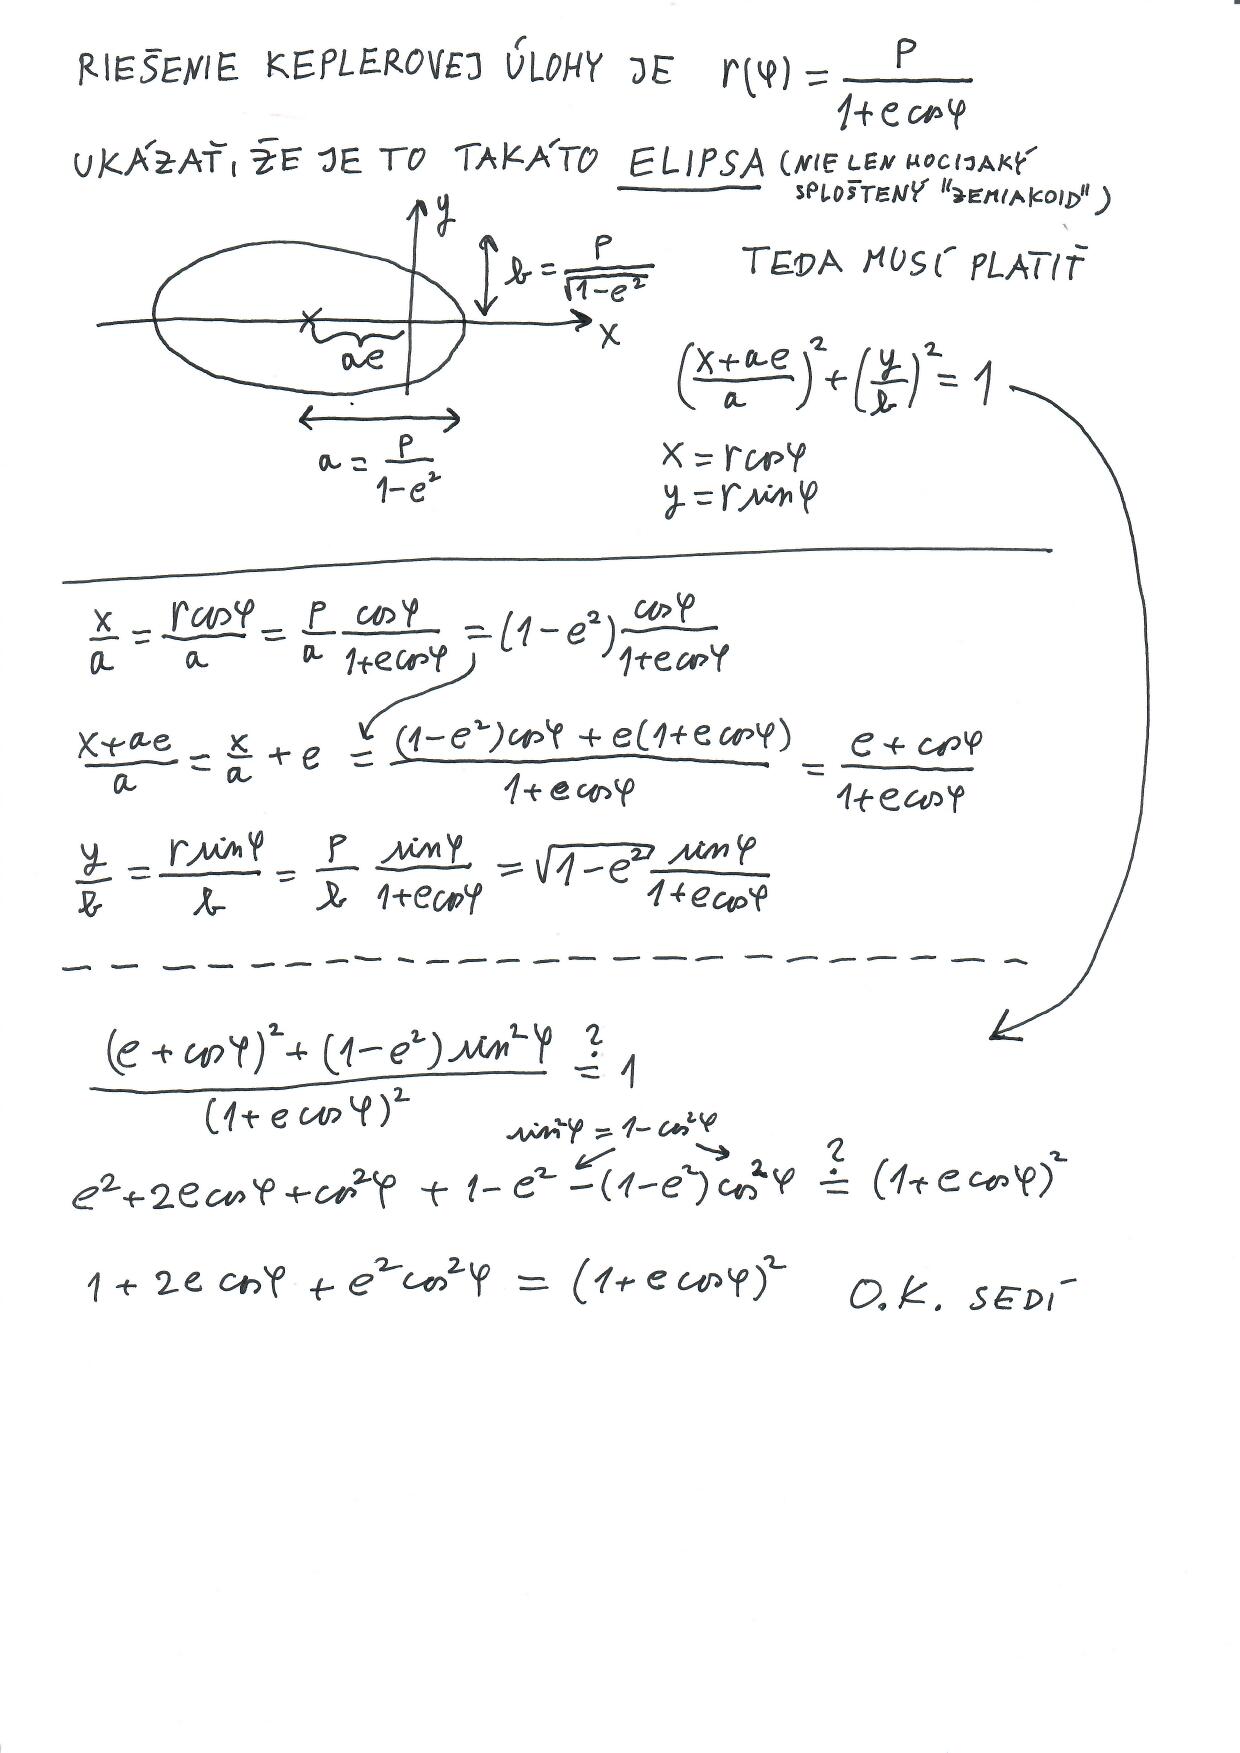 RIEŠENIE KEPLEROVEJ ÚLOHY JE r(φ) = p / (1+e cosφ)
UKÁZAŤ, ŽE JE TO TAKÁTO ELIPSA (NIE LEN HOCIJAKÝ
SPLOŠTENÝ "ZEMIAKOID")
y
b = p / √(1-e²)
TEDA MUSÍ PLATIŤ
x
ae
((x+ae)/a)² + (y/b)² = 1
a = p / (1-e²)
x = r cosφ
y = r sinφ
x/a = r cosφ / a = p/a cosφ / (1+e cosφ) = (1-e²) cosφ / (1+e cosφ)
(x+ae)/a = x/a + e = ((1-e²)cosφ + e(1+e cosφ)) / (1+e cosφ) = (e+cosφ) / (1+e cosφ)
y/b = r sinφ / b = p/b sinφ / (1+e cosφ) = √(1-e²) sinφ / (1+e cosφ)
((e+cosφ)² + (1-e²) sin²φ) / (1+e cosφ)² ≟ 1
sin²φ = 1-cos²φ
e²+2e cosφ+cos²φ + 1-e² -(1-e²)cos²φ ≟ (1+e cosφ)²
1+2e cosφ + e²cos²φ = (1+e cosφ)² O.K. SEDÍ